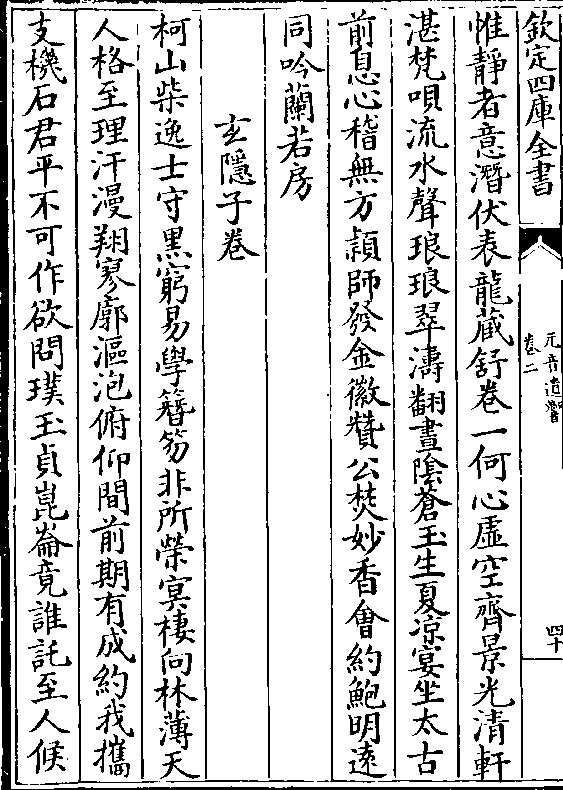 欽定四庫全書
元音遺響
卷二
四十
惟靜者意潛伏表龍藏舒卷一何心虛空齊景光清軒
湛梵唄流水聲琅琅翠濤翻晝陰蒼玉生夏凉宴坐太古
前息心稽無方頴師發金徽贊公焚妙香會約鮑明遠
同吟蘭若房
玄隱子卷
柯山柴逸士守黑窮易學簪笏非所榮冥棲向林薄天
人格至理汗漫翔寥廓漚泡俯仰間前期有成約我攜
支機石君平不可作欲問璞玉貞崑崙竟誰託至人候